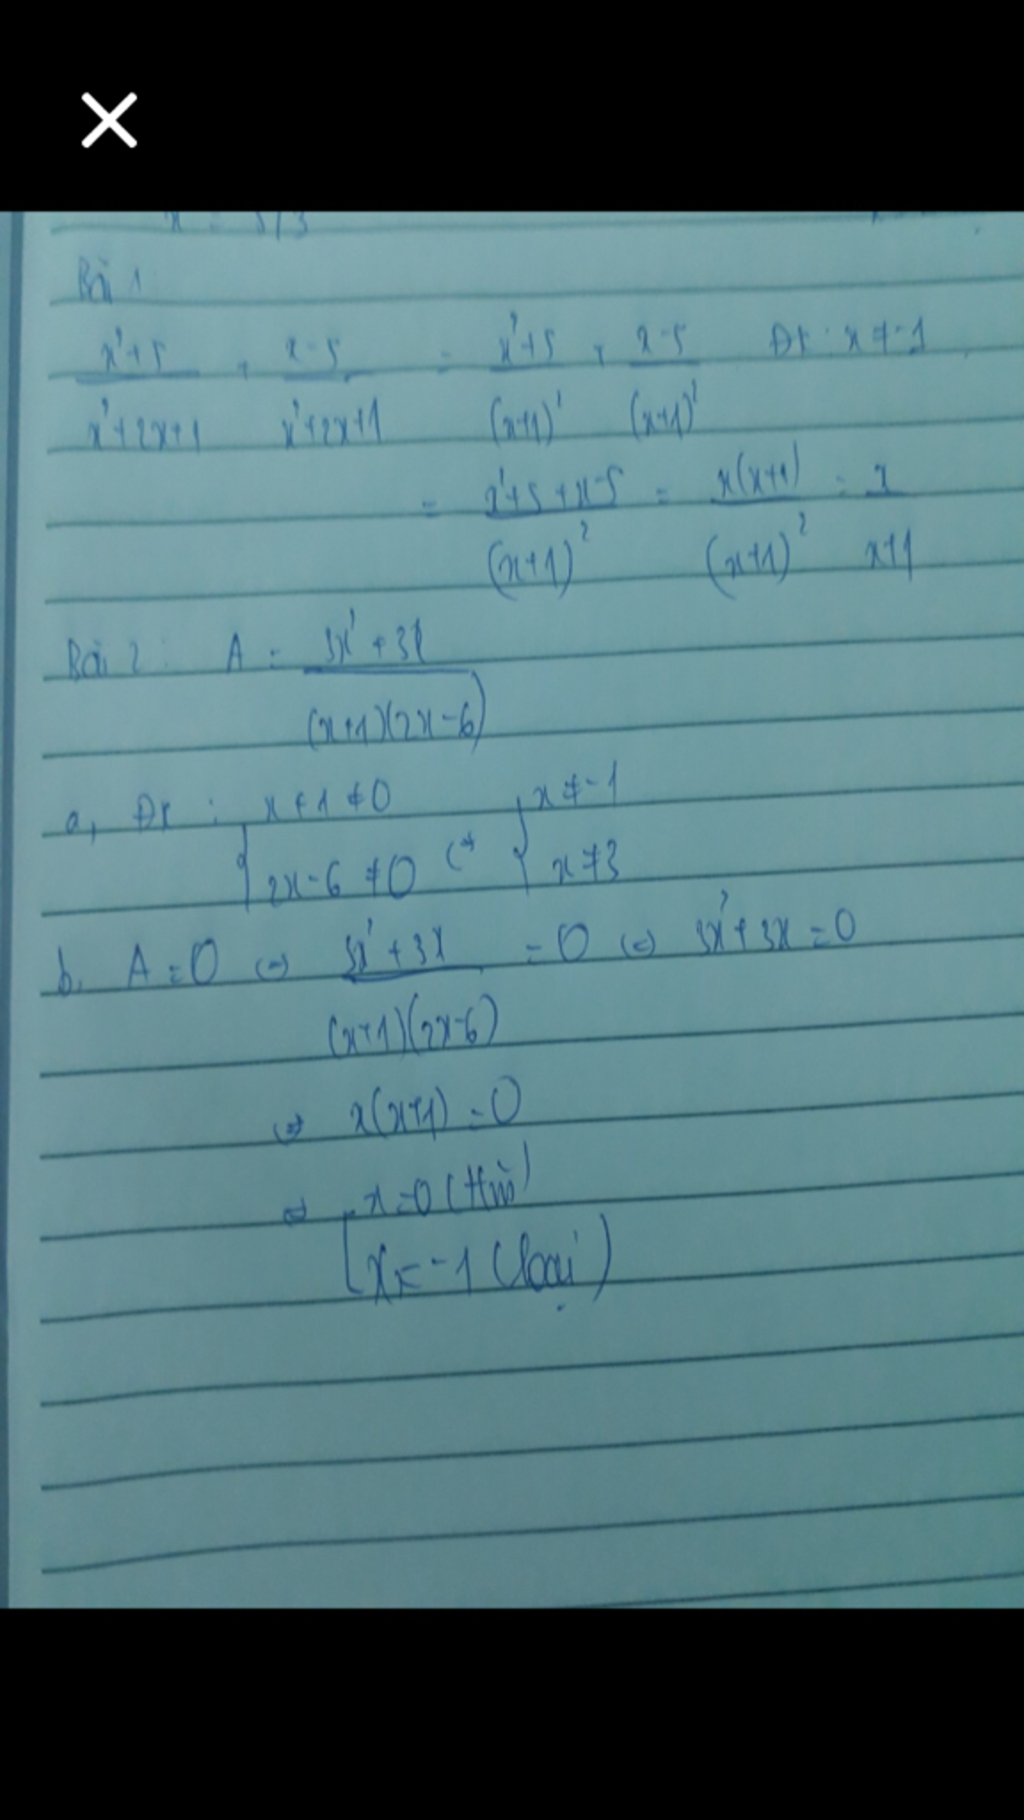 x = 5/3
Bài 1
x²+5 / x²+2x+1 + x-5 / x²+2x+1 = x²+5 / (x+1)² + x-5 / (x+1)² Đk: x ≠ -1
= x²+5+x-5 / (x+1)² = x(x+1) / (x+1)² = x / x+1
Bài 2: A = 3x²+3x / (x+1)(2x-6)
a, Đk: { x+1 ≠ 0
2x-6 ≠ 0 <=> { x ≠ -1
x ≠ 3
b. A=0 <=> 3x²+3x / (x+1)(2x-6) = 0 <=> 3x²+3x=0
<=> x(x+1)=0
<=> [ x=0 (t/m)
x=-1 (loại)